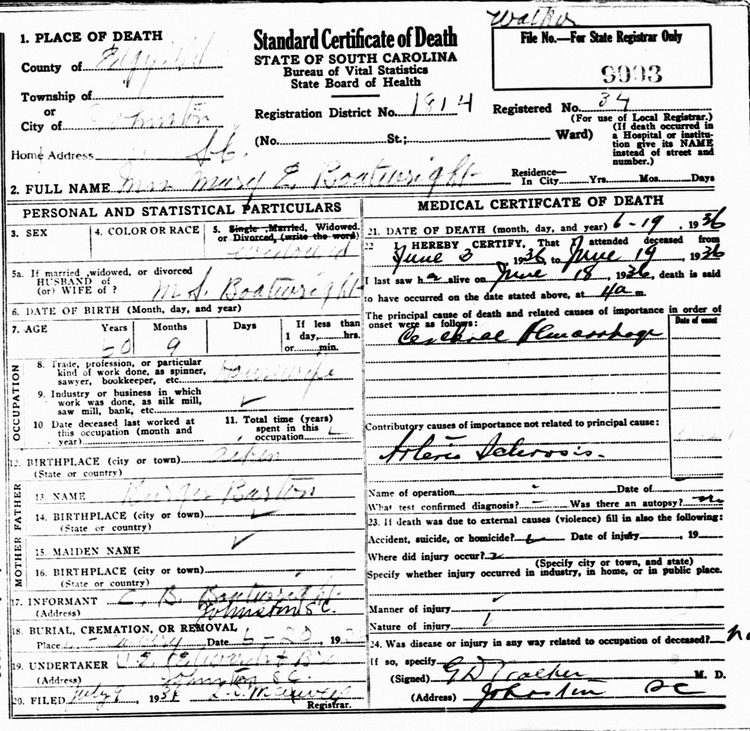 Walker
1. PLACE OF DEATH
County of Edgefield
Township of
or
City of Johnston
Home Address S.C.
Standard Certificate of Death
STATE OF SOUTH CAROLINA
Bureau of Vital Statistics
State Board of Health
Registration District No. 1814
(No. St.; Ward)
File No.—For State Registrar Only
9993
Registered No. 34
(For use of Local Registrar.)
(If death occurred in
a Hospital or institu-
tion give its NAME
instead of street and
number.)
2. FULL NAME Mrs Mary E Boatwright
Residence—
In City Yrs. Mos. Days
PERSONAL AND STATISTICAL PARTICULARS
3. SEX
4. COLOR OR RACE
5. Single, Married, Widowed,
or Divorced, (write the word)
widowed
5a. If married, widowed, or divorced
HUSBAND of
(or) WIFE of ? M. S. Boatwright
6. DATE OF BIRTH (Month, day, and year)
7. AGE Years Months Days If less than
1 day, hrs.
or min.
9
OCCUPATION
8. Trade, profession, or particular
kind of work done, as spinner,
sawyer, bookkeeper, etc. Housewife
9. Industry or business in which
work was done, as silk mill,
saw mill, bank, etc. ✓
10 Date deceased last worked at
this occupation (month and
year)
11. Total time (years)
spent in this
occupation
12. BIRTHPLACE (city or town) Aiken
(State or country)
FATHER
13. NAME Barton
14. BIRTHPLACE (city or town) ✓
(State or country)
MOTHER
15. MAIDEN NAME ✓
16. BIRTHPLACE (city or town)
(State or country)
17. INFORMANT C. B. Boatwright
(Address) Johnston S.C.
18. BURIAL, CREMATION, OR REMOVAL
Place Date 6-20 19
19. UNDERTAKER
Johnston SC
20. FILED July 9 1936
Registrar.
MEDICAL CERTIFICATE OF DEATH
21. DATE OF DEATH (month, day, and year) 6-19, 1936
22 I HEREBY CERTIFY, That I attended deceased from
June 3 1936 to June 19, 1936
I last saw h alive on June 18, 1936, death is said
to have occurred on the date stated above, at 4a m.
The principal cause of death and related causes of importance in order of
onset were as follows: Date of onset
Cerebral Hemorrhage
Contributory causes of importance not related to principal cause:
Arterio Sclerosis.
Name of operation Date of
What test confirmed diagnosis? Was there an autopsy? no
23. If death was due to external causes (violence) fill in also the following:
Accident, suicide, or homicide? Date of injury , 19
Where did injury occur?
(Specify city or town, and state)
Specify whether injury occurred in industry, in home, or in public place.
Manner of injury
Nature of injury
24. Was disease or injury in any way related to occupation of deceased? no
If so, specify
(Signed) G D Walker M. D.
(Address) Johnston SC